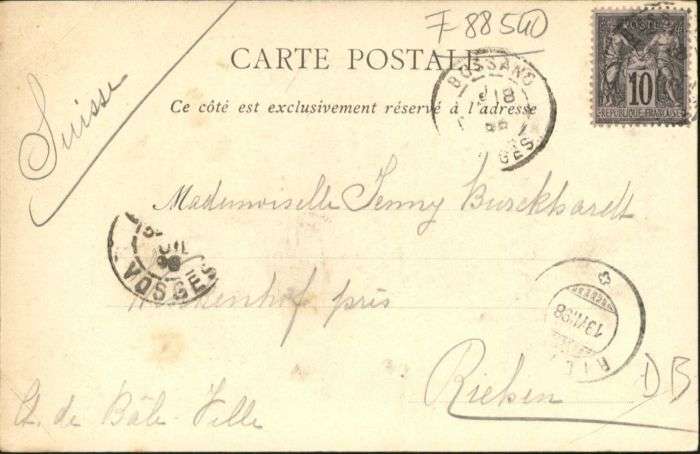 F 88540
CARTE POSTALE
Ce côté est exclusivement réservé à l'adresse
Suisse
POSTES
10
REPUBLIQUE FRANÇAISE
BUSSANG
Mademoiselle Jenny Burckhardt
VOSGES
Wenkenhof près
13.VII.98
Riehen
DB
Ct. de Bâle-Ville